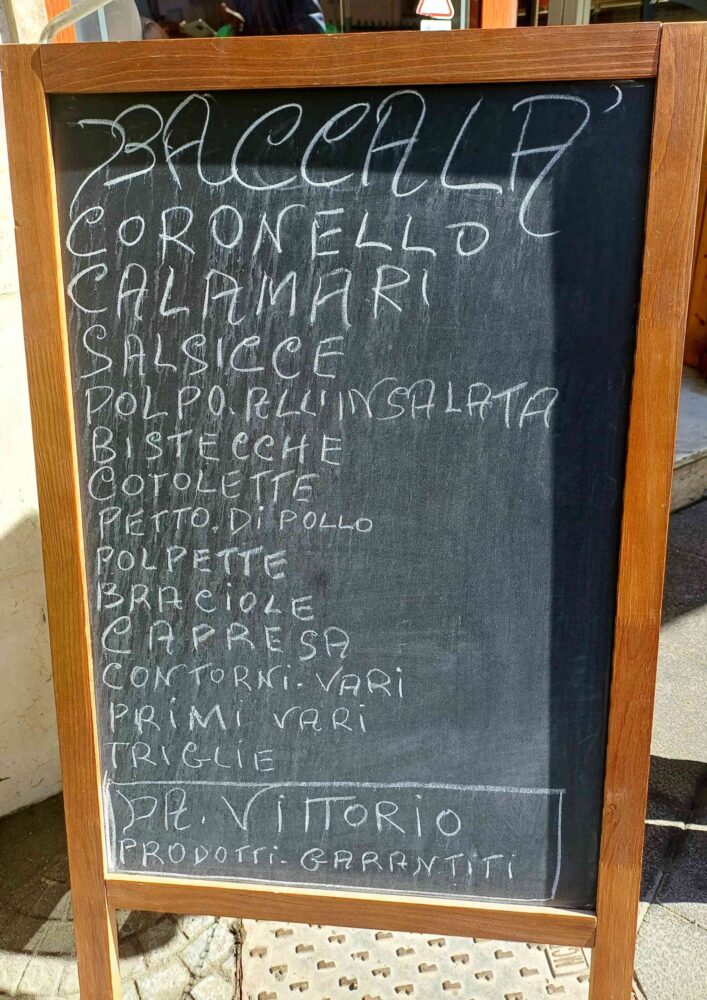 BACCALA'
CORONELLO
CALAMARI
SALSICCE
POLPO.ALL'INSALATA
BISTECCHE
COTOLETTE
PETTO.Di POLLO
POLPETTE
BRACiOLE
CAPRESA
CONTORNi-VARi
PRiMi VARi
TRiGLiE
DA.ViTTORiO
PRODOTTi-GARANTiTi